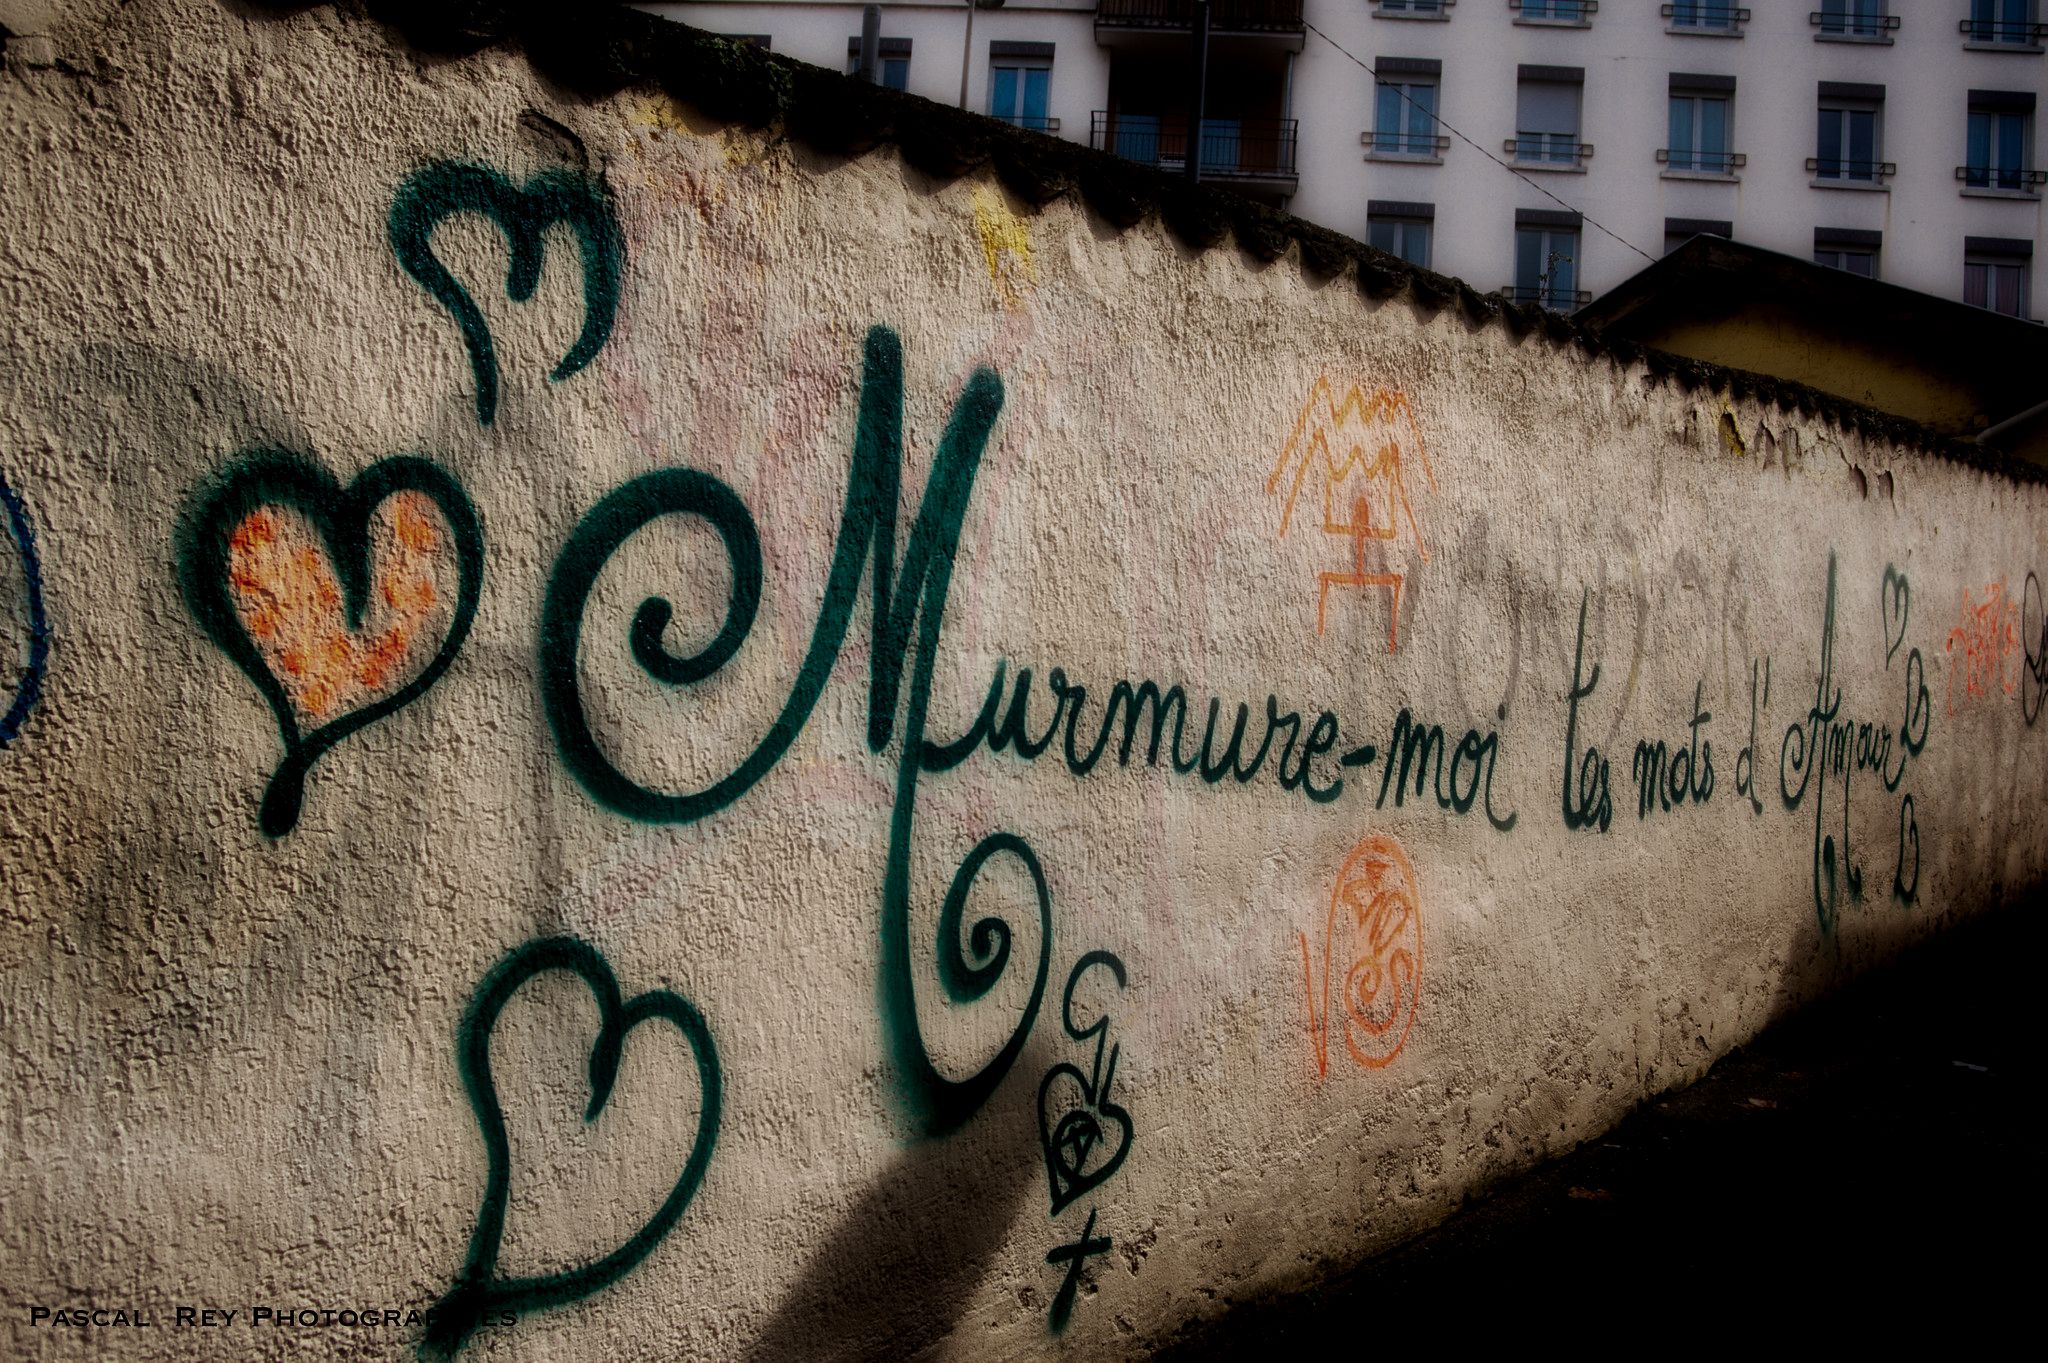 Murmure-moi tes mots d'Amour
Pascal Rey Photographies